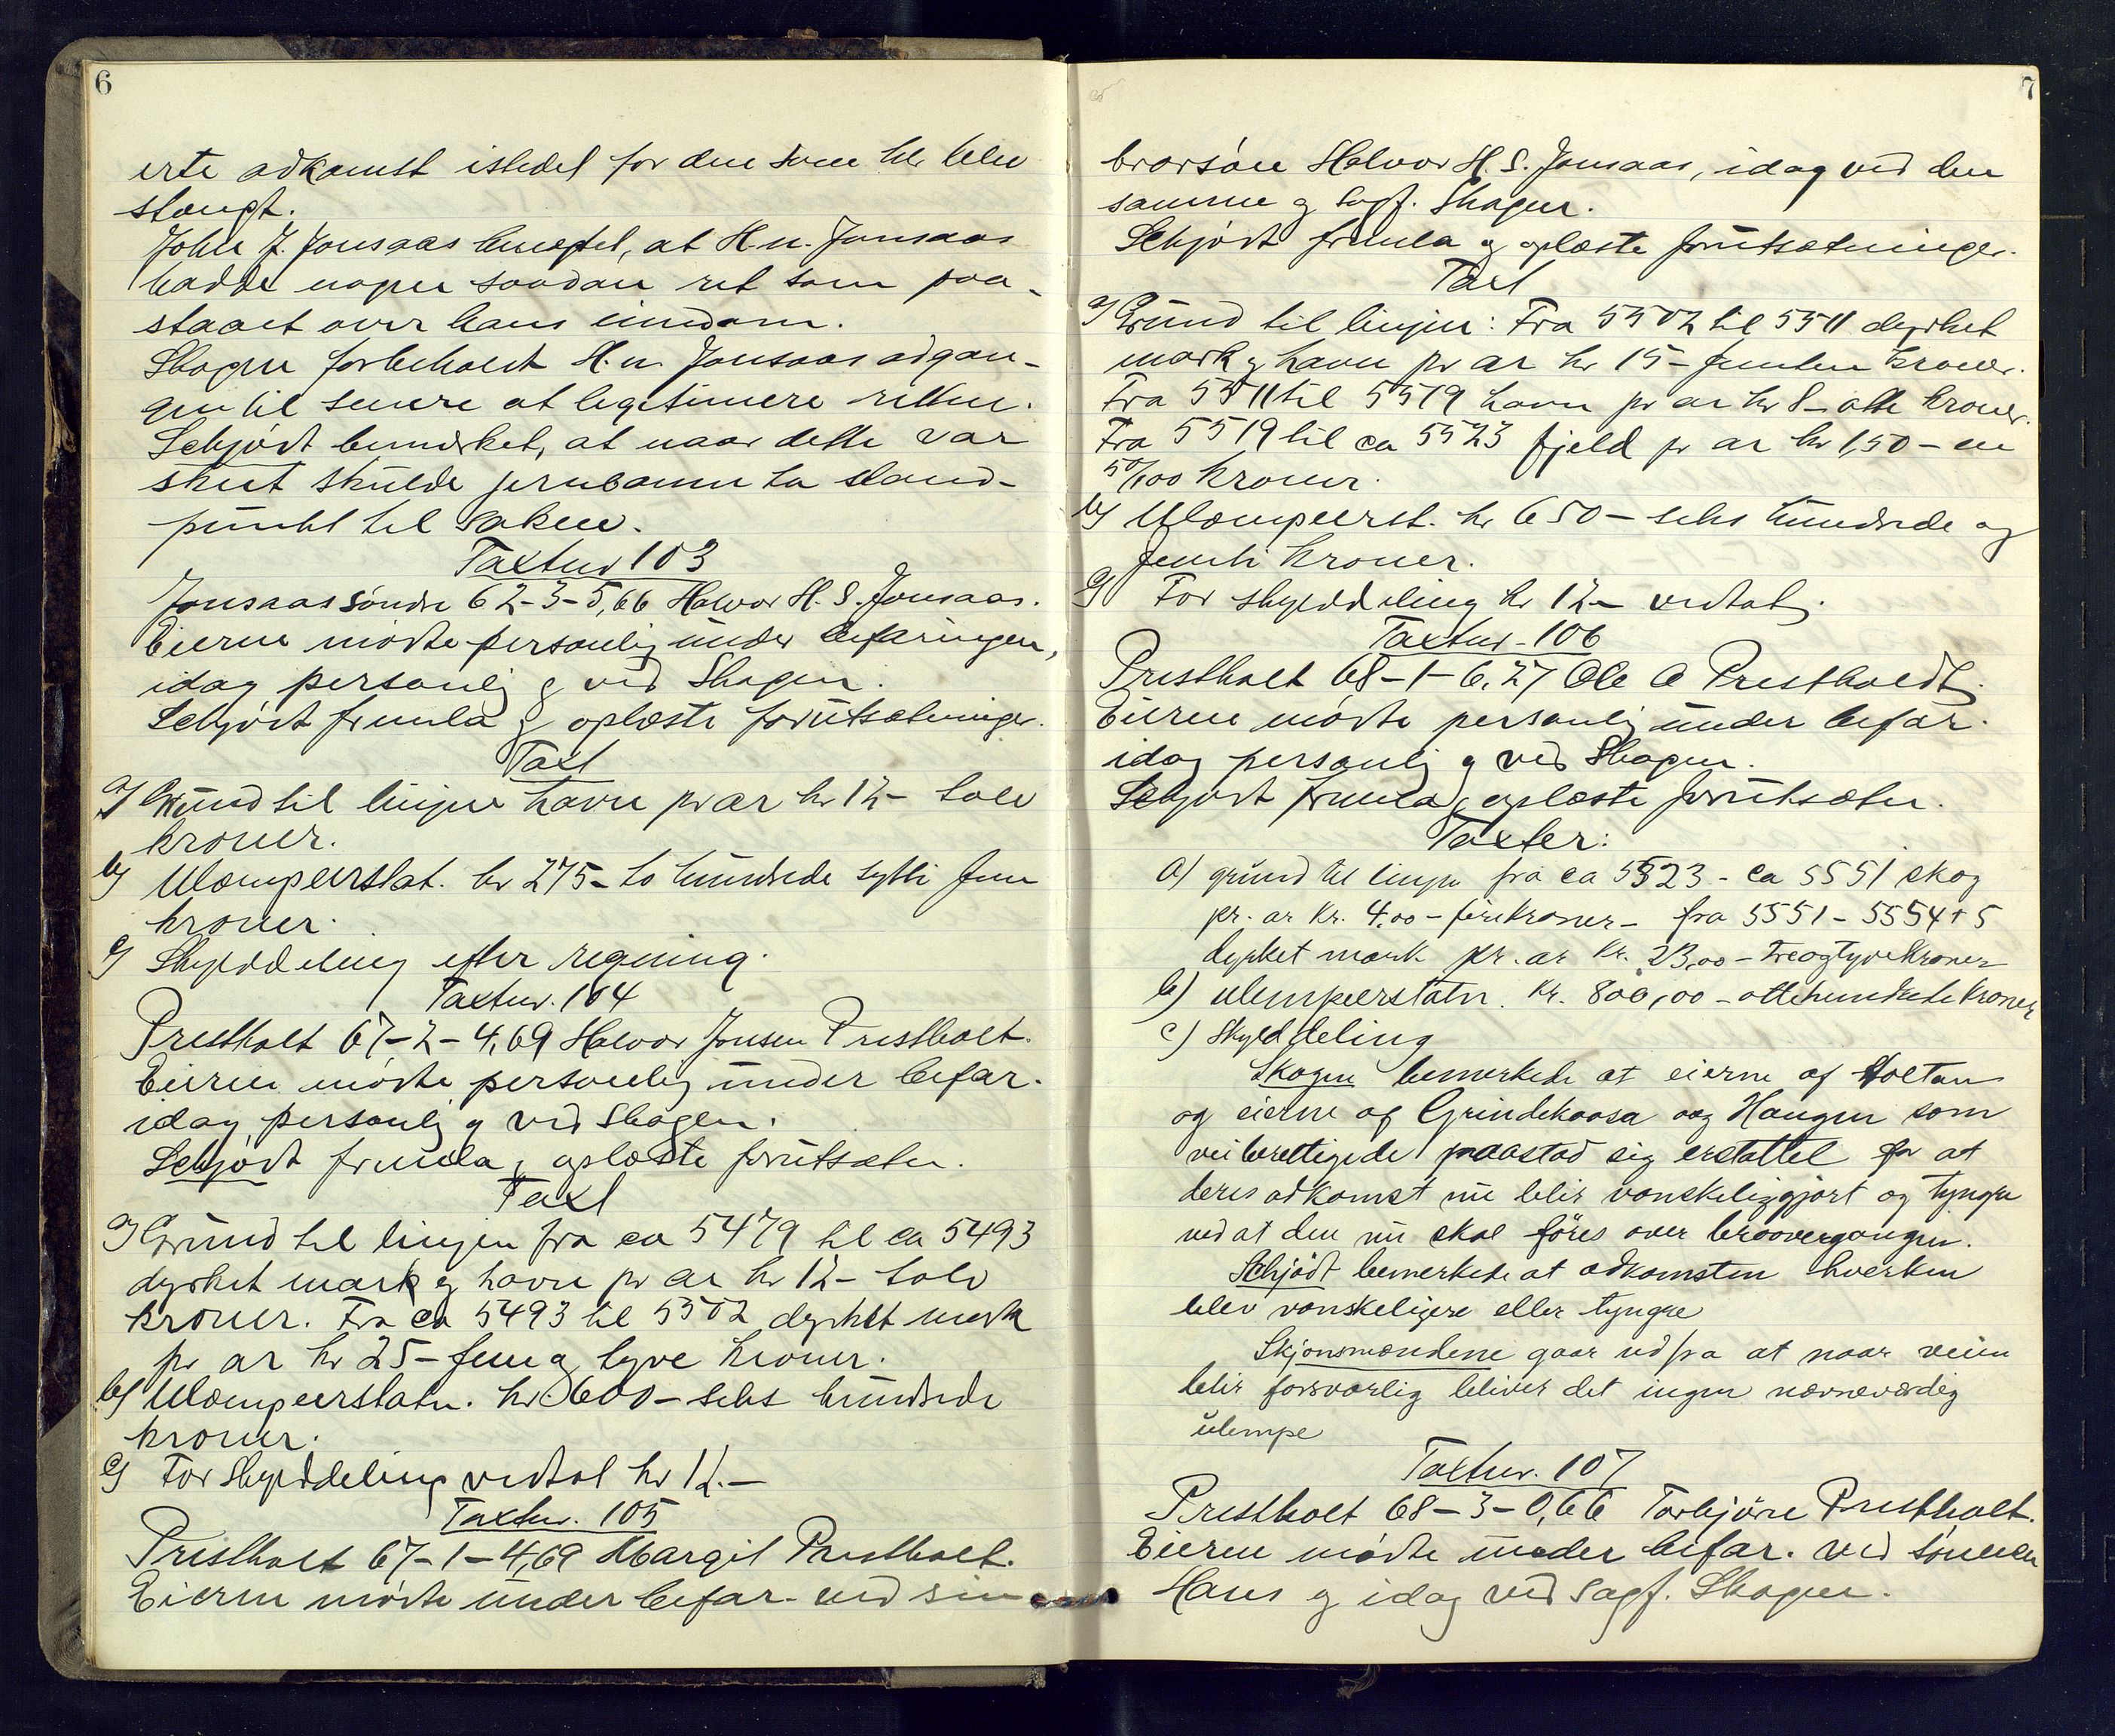 6
erte adkomst istedet for den som bli blev
stængt.
John J. Jonsaas benegtet, at H. n. Jonsaas
hadde nogen saadan ret som paa-
staaet over hans eiendom.
Skogen forbeholdt H. n. Jonsaas adgan-
gen til senere at legitimere retten.
Schjødt bemerket, at naar dette var
skeet skulde jernbanen ta stand-
punkt til saken.
Taxtnr 103
Jonsaas søndre 62-3-5,66 Halvor H. S. Jonsaas.
Eieren mødte personlig under befaringen,
idag personlig og ved Skogen.
Schjødt fremla og oplæste forutsætninger.
Taxt
a) Grund til linjen havn pr ar kr 12- tolv
kroner.
b) Ulæmpeerstat. kr 275- to hundrede sytti fem
kroner.
c) Skylddeling efter regning.
Taxtnr. 104
Prestholt 67-2-4,69 Halvor Jonsen Prestholt.
Eieren mødte personlig under befar.
idag personlig og ved Skogen.
Schjødt fremla og oplæste forutsætn.
Taxt
a) Grund til linjen fra ca 5479 til ca 5493
dyrket mark og havn pr ar kr 12- tolv
kroner. Fra ca 5493 til 5502 dyrket mark
pr ar kr 25- fem og tyve kroner.
b) Ulæmpeerstatn. kr 600- seks hundrede
kroner.
c) For skylddeling vedtat kr 12.-
Taxtnr. 105
Prestholt 67-1-4,69 Margit Prestholt.
Eieren mødte under befar. ved sin
7
brorsøn Halvor H. S. Jonsaas, idag ved den
samme og sagf. Skogen.
Schjødt fremla og oplæste forutsætninger.
Taxt
a) Grund til linjen: Fra 5502 til 5511 dyrket
mark og havn pr ar kr 15- femten kroner.
Fra 5511 til 5519 havn pr ar kr 8- otte kroner.
Fra 5519 til ca 5523 fjeld pr ar kr 1,50- en
50/100 kroner.
b) Ulæmpeerst. kr 650- seks hundrede og
femti kroner.
c) For skylddeling kr 12- vedtat.
Taxtnr. 106
Prestholt 68-1-6,27 Ole O Prestholdt.
Eieren mødte personlig under befar.
idag personlig og ved Skogen.
Schjødt fremla og oplæste forutsætn.
Taxter:
a) grund til linjen fra ca 5523 - ca 5551 skog
pr. ar kr. 4.00 - fire kroner - fra 5551 - 5554+5
dyrket mark pr. ar kr. 23,00 - treogtyve kroner
b) ulempeerstatn. kr. 800,00 - ottehundrede kroner
c) Skylddeling
Skogen bemerkede at eierne af Holtan
og eierne af Grindekaasa og Haugen som
veiberettigede paastod sig erstattet for at
deres adkomst nu blir vanskeliggjort og tyngre
ved at den nu skal føres over broovergangen.
Schjødt bemerkede at adkomsten hverken
blev vanskeligere eller tyngre
Skjønsmændene gaar ud fra at naar veien
blir forsvarlig bliver det ingen nævneværdig
ulempe
Taxtnr. 107
Prestholt 68-3-0,66 Torbjørn Prestholt.
Eieren mødte under befar. ved sønnen
Hans og idag ved sagf. Skogen.